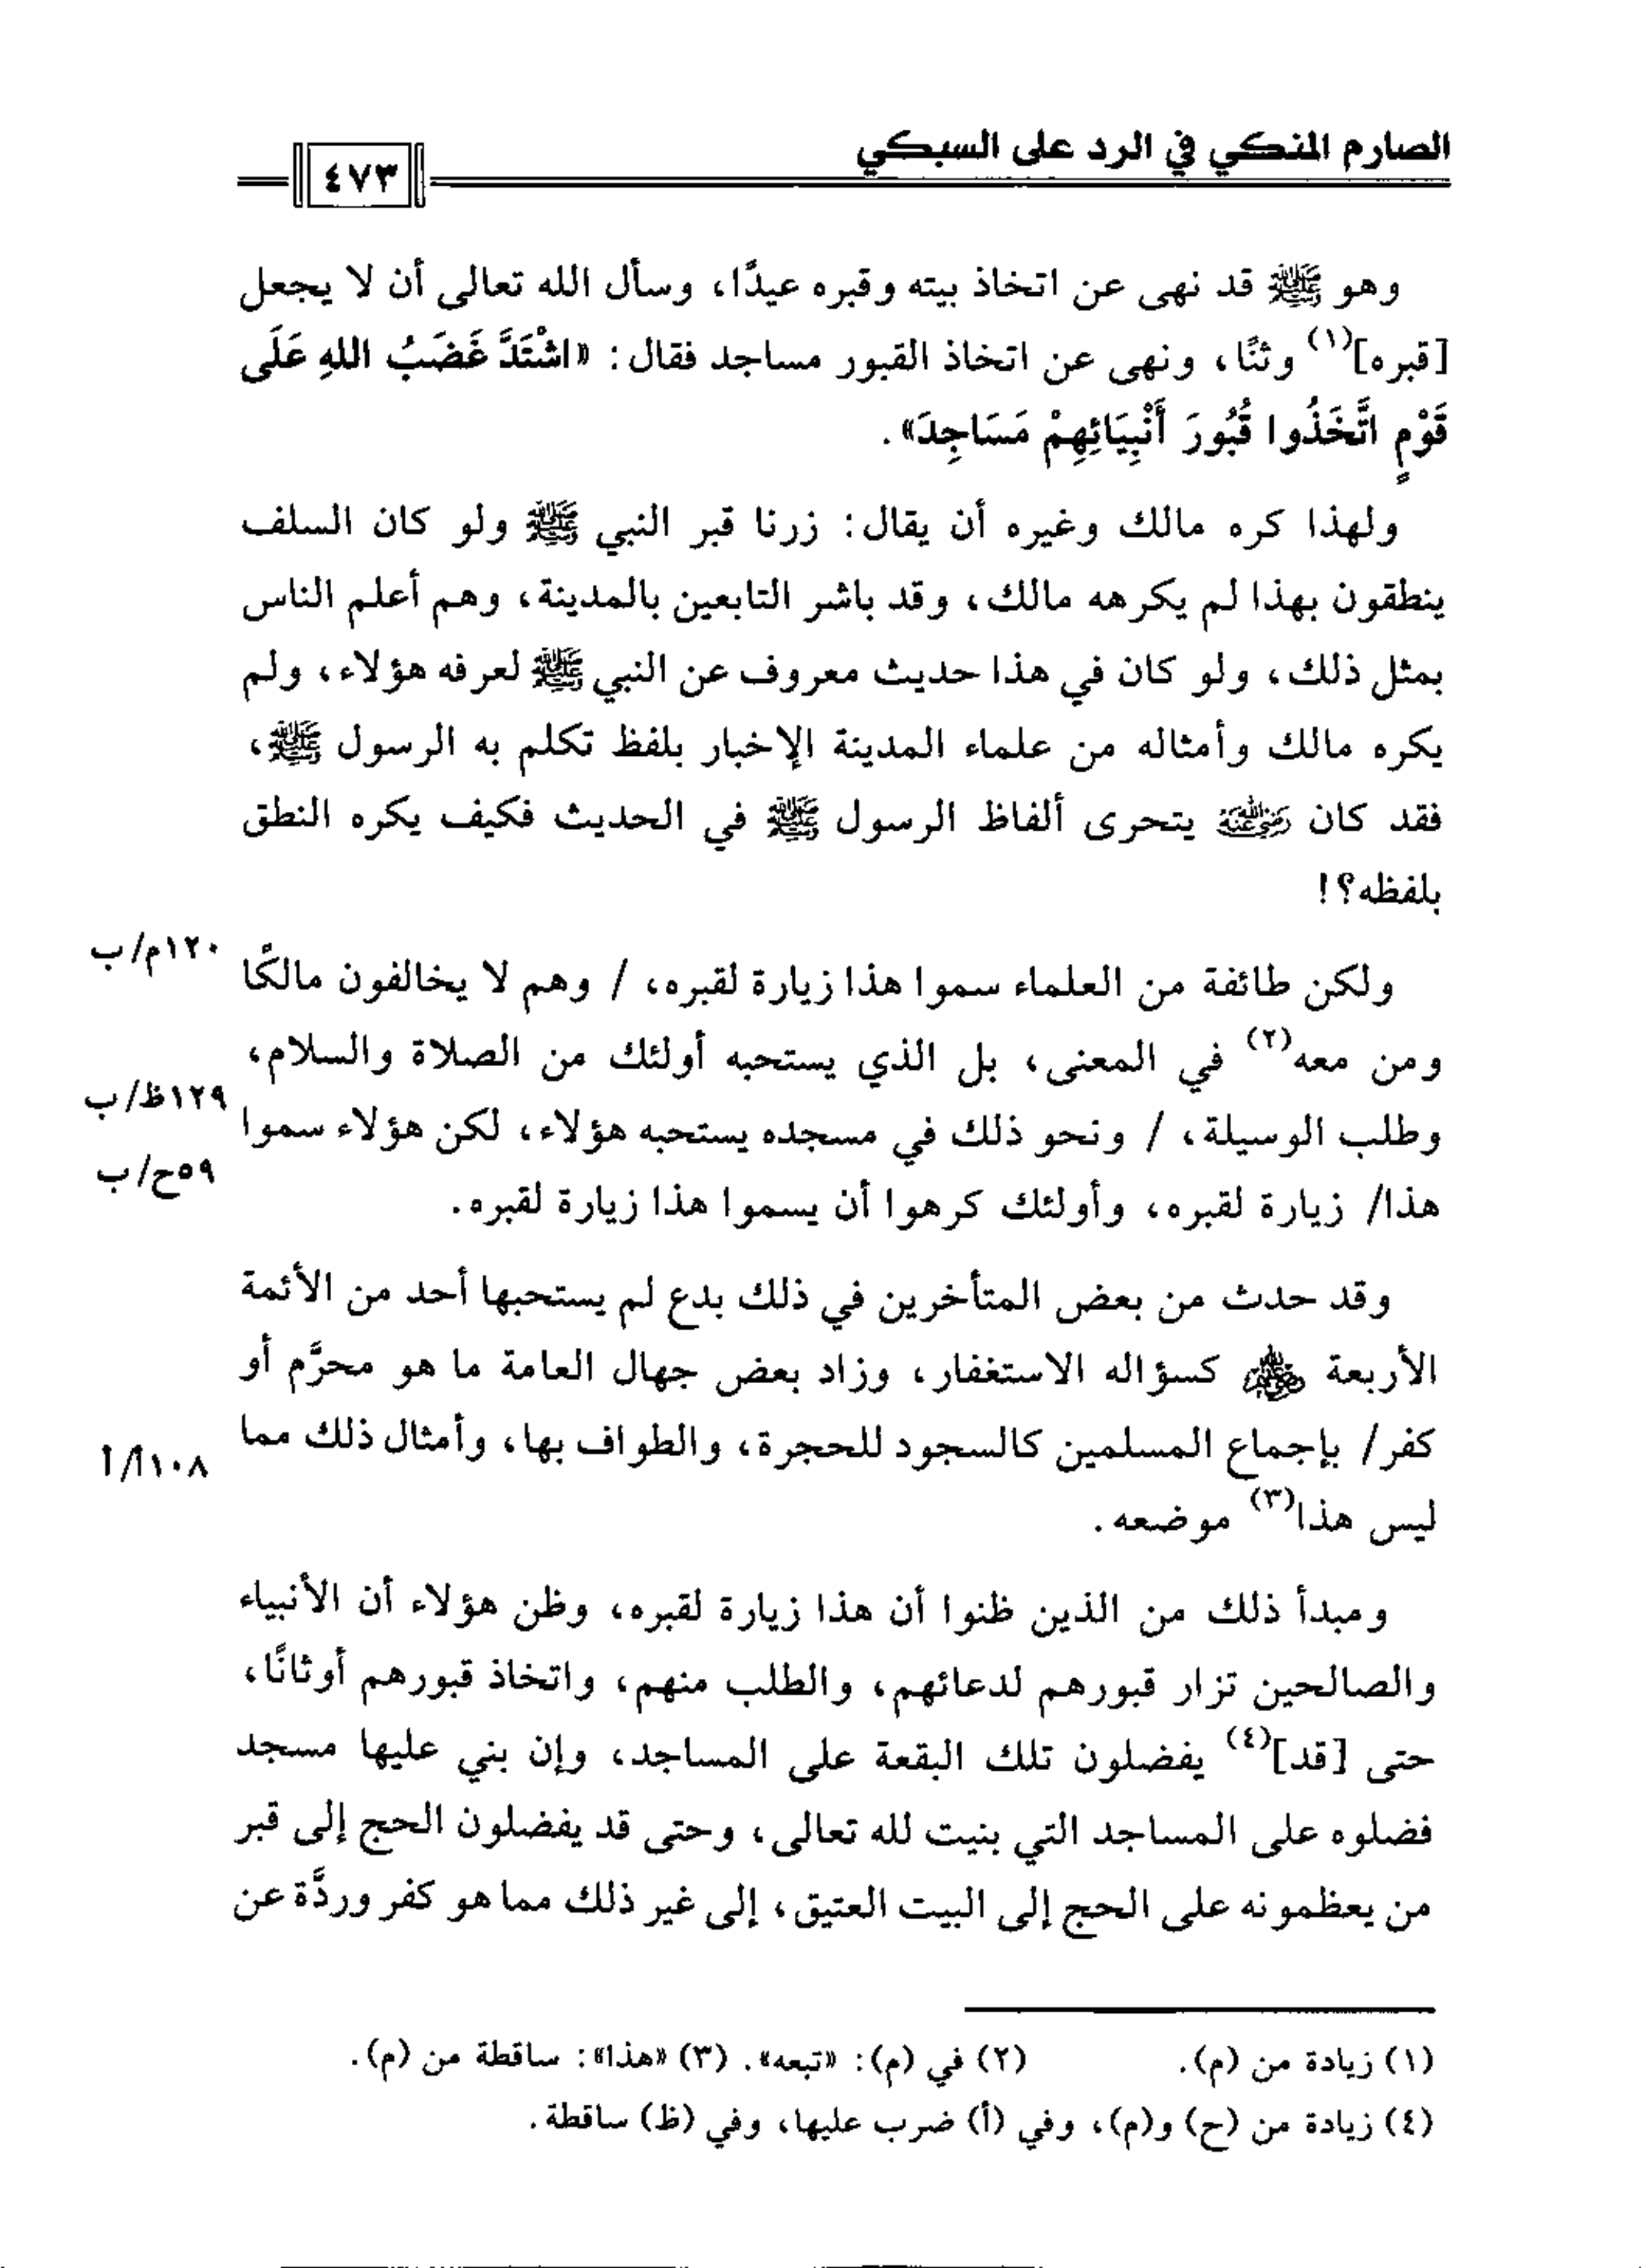 الصارم المنكي في الرد على السبكي
٤٧٣
وهو ﷺ قد نهى عن اتخاذ بيته وقبره عيدًا، وسأل الله تعالى أن لا يجعل
[قبره](١) وثنًا، ونهى عن اتخاذ القبور مساجد فقال: «اشْتَدَّ غَضَبُ اللهِ عَلَى
قَوْمٍ اتَّخَذُوا قُبُورَ أَنْبِيَائِهِمْ مَسَاجِدَ».
ولهذا كره مالك وغيره أن يقال: زرنا قبر النبي ﷺ ولو كان السلف
ينطقون بهذا لم يكرهه مالك، وقد باشر التابعين بالمدينة، وهم أعلم الناس
بمثل ذلك، ولو كان في هذا حديث معروف عن النبي ﷺ لعرفه هؤلاء، ولم
يكره مالك وأمثاله من علماء المدينة الإخبار بلفظ تكلم به الرسول ﷺ،
فقد كان رضي الله عنه يتحرى ألفاظ الرسول ﷺ في الحديث فكيف يكره النطق
بلفظه؟!
١٢٠م/ب
ولكن طائفة من العلماء سموا هذا زيارة لقبره، / وهم لا يخالفون مالكًا
ومن معه(٢) في المعنى، بل الذي يستحبه أولئك من الصلاة والسلام،
١٢٩ظ/ب
وطلب الوسيلة، / ونحو ذلك في مسجده يستحبه هؤلاء، لكن هؤلاء سموا
٥٩ح/ب
هذا/ زيارة لقبره، وأولئك كرهوا أن يسموا هذا زيارة لقبره.
وقد حدث من بعض المتأخرين في ذلك بدع لم يستحبها أحد من الأئمة
الأربعة رضي الله عنهم كسؤاله الاستغفار، وزاد بعض جهال العامة ما هو محرَّم أو
كفر/ بإجماع المسلمين كالسجود للحجرة، والطواف بها، وأمثال ذلك مما
١٠٨أ/أ
ليس هذا(٣) موضعه.
ومبدأ ذلك من الذين ظنوا أن هذا زيارة لقبره، وظن هؤلاء أن الأنبياء
والصالحين تزار قبورهم لدعائهم، والطلب منهم، واتخاذ قبورهم أوثانًا،
حتى [قد](٤) يفضلون تلك البقعة على المساجد، وإن بني عليها مسجد
فضلوه على المساجد التي بنيت لله تعالى، وحتى قد يفضلون الحج إلى قبر
من يعظمونه على الحج إلى البيت العتيق، إلى غير ذلك مما هو كفر وردَّة عن
(١) زيادة من (م). (٢) في (م): «تبعه». (٣) «هذا»: ساقطة من (م).
(٤) زيادة من (ح) و(م)، وفي (أ) ضرب عليها، وفي (ظ) ساقطة.